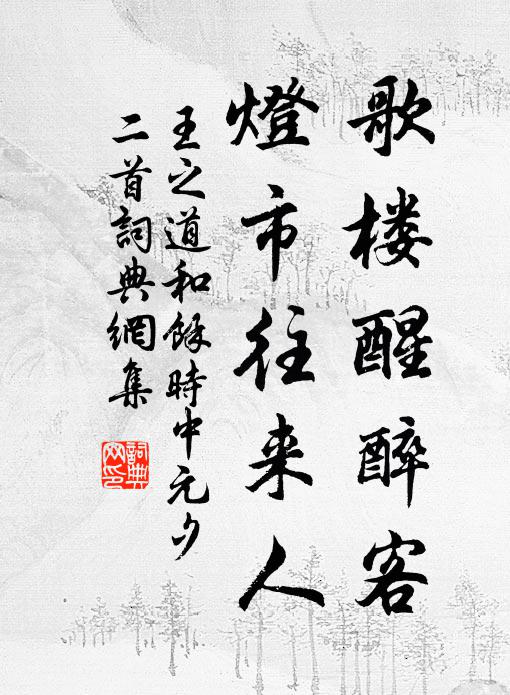 歌楼醒醉客
燈市往来人
王之道和餘時中元夕
二首詞典網集
詞典
网印